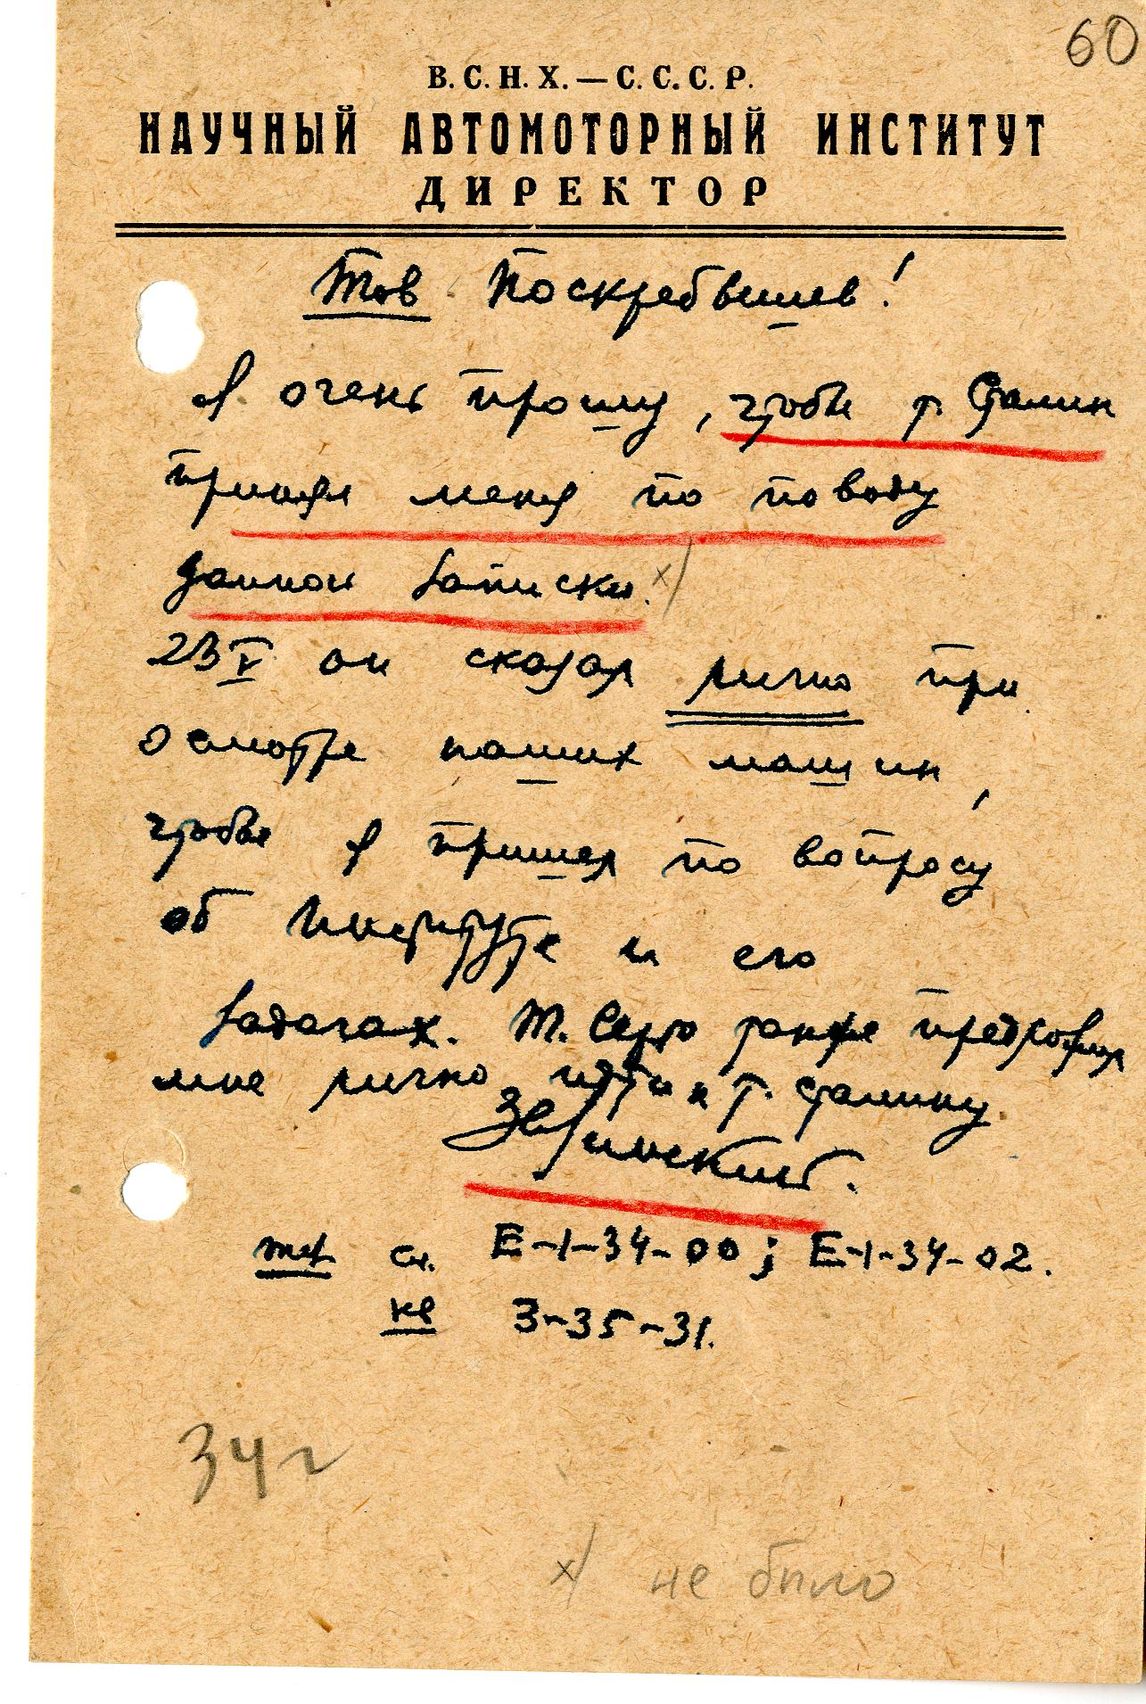 60
В. С. Н. Х. — С. С. С. Р.
НАУЧНЫЙ АВТОМОТОРНЫЙ ИНСТИТУТ
ДИРЕКТОР
Тов Поскребышев!
Я очень прошу, чтобы т. Сталин
принял меня по поводу
данной записки. х/
23 V он сказал лично при
осмотре наших машин,
чтобы я пришел по вопросу
об Институте и его
задачах. Т. Серго также предложил
мне лично идти к т. Сталину.
Звязинский.
тел сл. Е-1-34-00; Е-1-34-02.
кв 3-35-31.
34 г
х/ не было